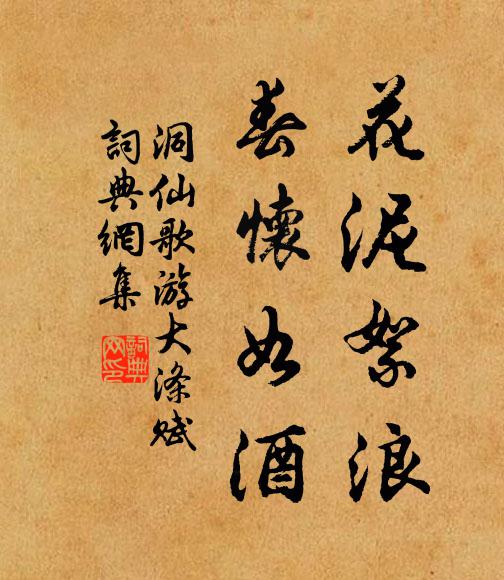 花泥絮浪
春懷如酒
洞仙歌游大滌賦
詞典網集
詞典網印